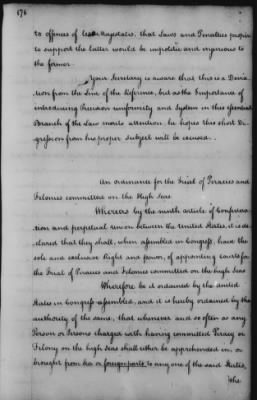 676
to offences of less Magnitude, that Laws and Penalties proper
to support the latter would be impolitic and injurious to
the former.
Your Secretary is aware that this is a Devia
tion from the Line of the Reference, but as the Importance of
introducing Precision uniformity and System in this
Branch of the Law merits attention, he hopes this short Di
gression from his proper Subject will be excused.
An ordinance for the Trial of Piracies and
Felonies committed on the High Seas
Whereas by the ninth article of Confedera
tion and perpetual union between the United States, it is de
clared that they shall, when assembled in Congress, have the
sole and exclusive Right and power, of appointing courts for
the Trial of Piracies and Felonies committed on the high Seas
Wherefore be it ordained by the united
States in Congress assembled, and it is hereby ordained by the
authority of the same, that whenever and so often as any
Person or Persons charged with having committed Piracy or
Felony on the high Seas shall either be apprehended in, or
brought from sea or foreign parts to any one of the said States,
the